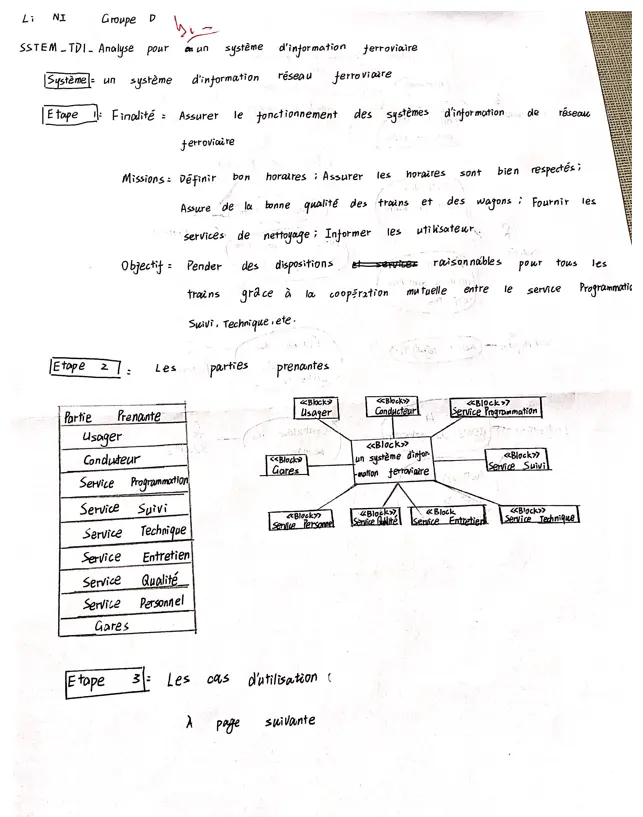 Li NI Groupe D
SSTEM_TDI_ Analyse pour un système d'information ferroviaire
Système = un système d'information réseau ferroviaire
Etape 1: Finalité = Assurer le fonctionnement des systèmes d'information de réseau
ferroviaire
Missions = Définir bon horaires ; Assurer les horaires sont bien respectés ;
Assure de la bonne qualité des trains et des wagons ; Fournir les
services de nettoyage ; Informer les utilisateur.
Objectif = Pender des dispositions et services raisonnables pour tous les
trains grâce à la coopération mutuelle entre le service Programmatio
Suivi, Technique, ete.
Etape 2 : Les parties prenantes
Partie Prenante
Usager
Conducteur
Service Programmation
Service Suivi
Service Technique
Service Entretien
Service Qualité
Service Personnel
Gares
<<Block>>
Usager
<<Block>>
Conducteur
<<Block>>
Service Programmation
<<Block>>
Gares
<<Block>>
un système d'infor-
-mation ferroviaire
<<Block>>
Service Suivi
<<Block>>
Service Personnel
<<Block>>
Service Qualité
<<Block
Service Entretien
<<Block>>
Service Technique
Etape 3 : Les cas d'utilisation :
À page suivante